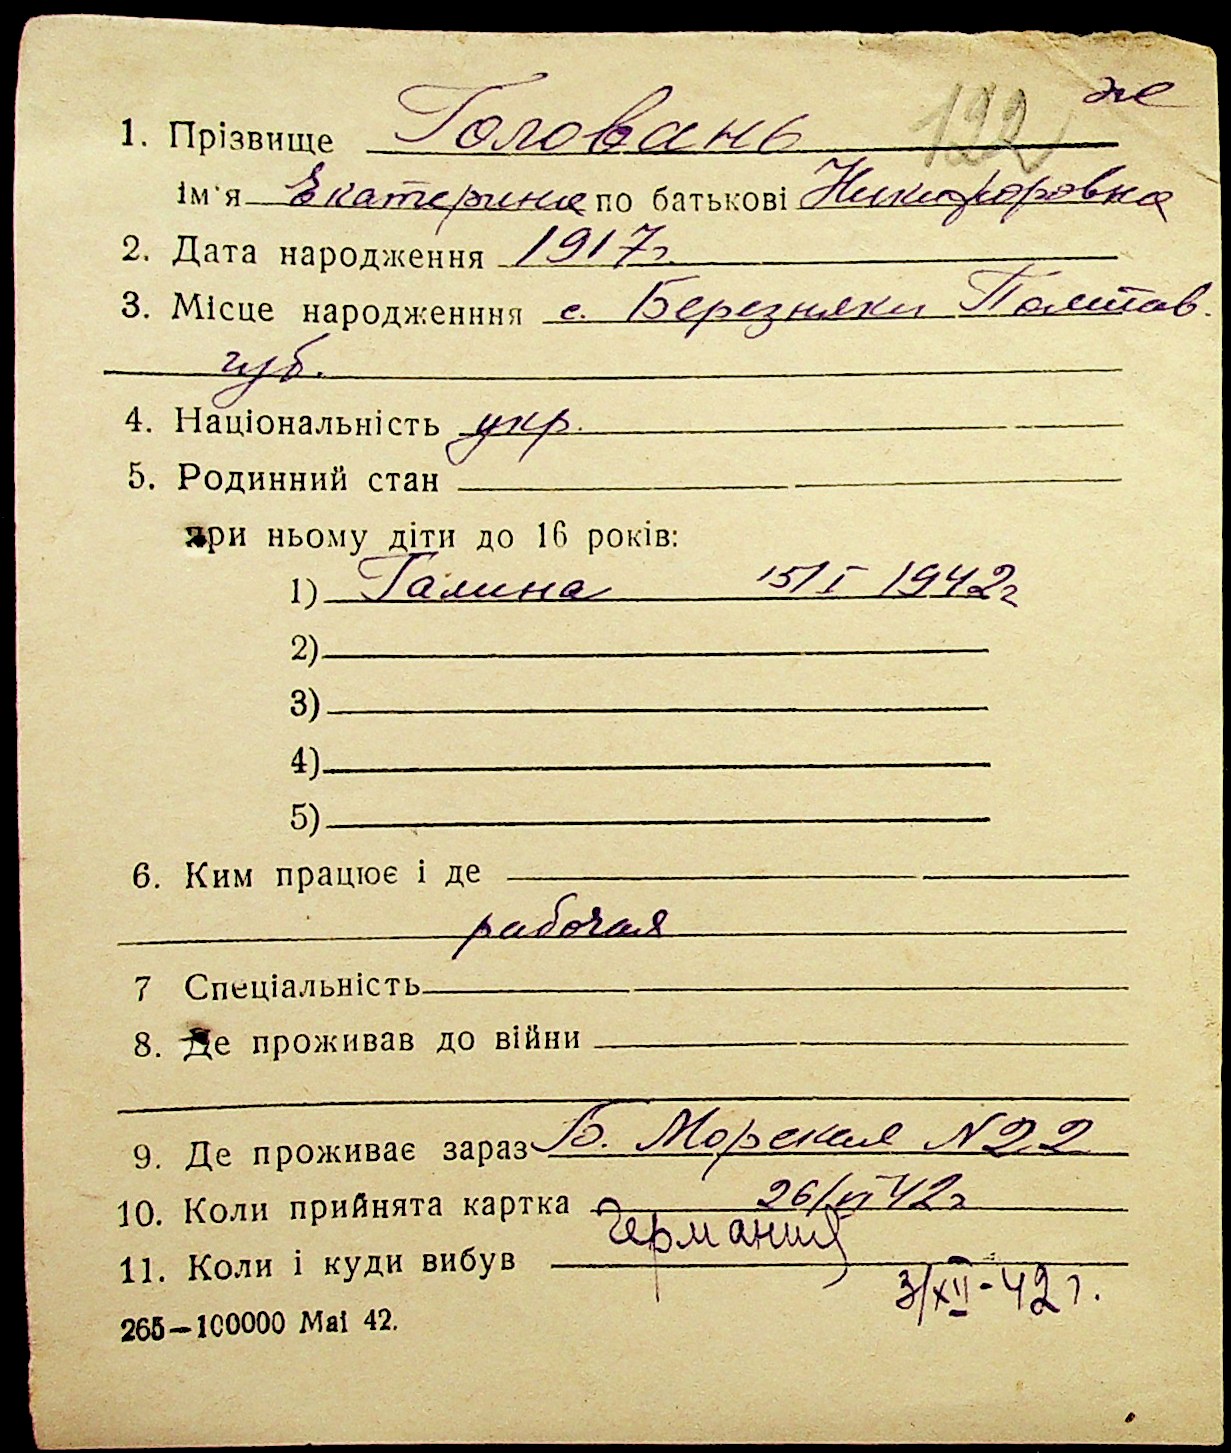 122 же
1. Прізвище Головань
ім'я Екатерина по батькові Никифоровна
2. Дата народження 1917г.
3. Місце народженння с. Березняки Полтав.
губ.
4. Національність укр.
5. Родинний стан
при ньому діти до 16 років:
1) Галина 15/I 1942г
2)
3)
4)
5)
6. Ким працює і де
рабочая
7 Спеціальність
8. Де проживав до війни
9. Де проживає зараз Б. Морская N 22
10. Коли прийнята картка 26/VI 42г
11. Коли і куди вибув Германия
3/XII-42г.
265—100000 Mai 42.